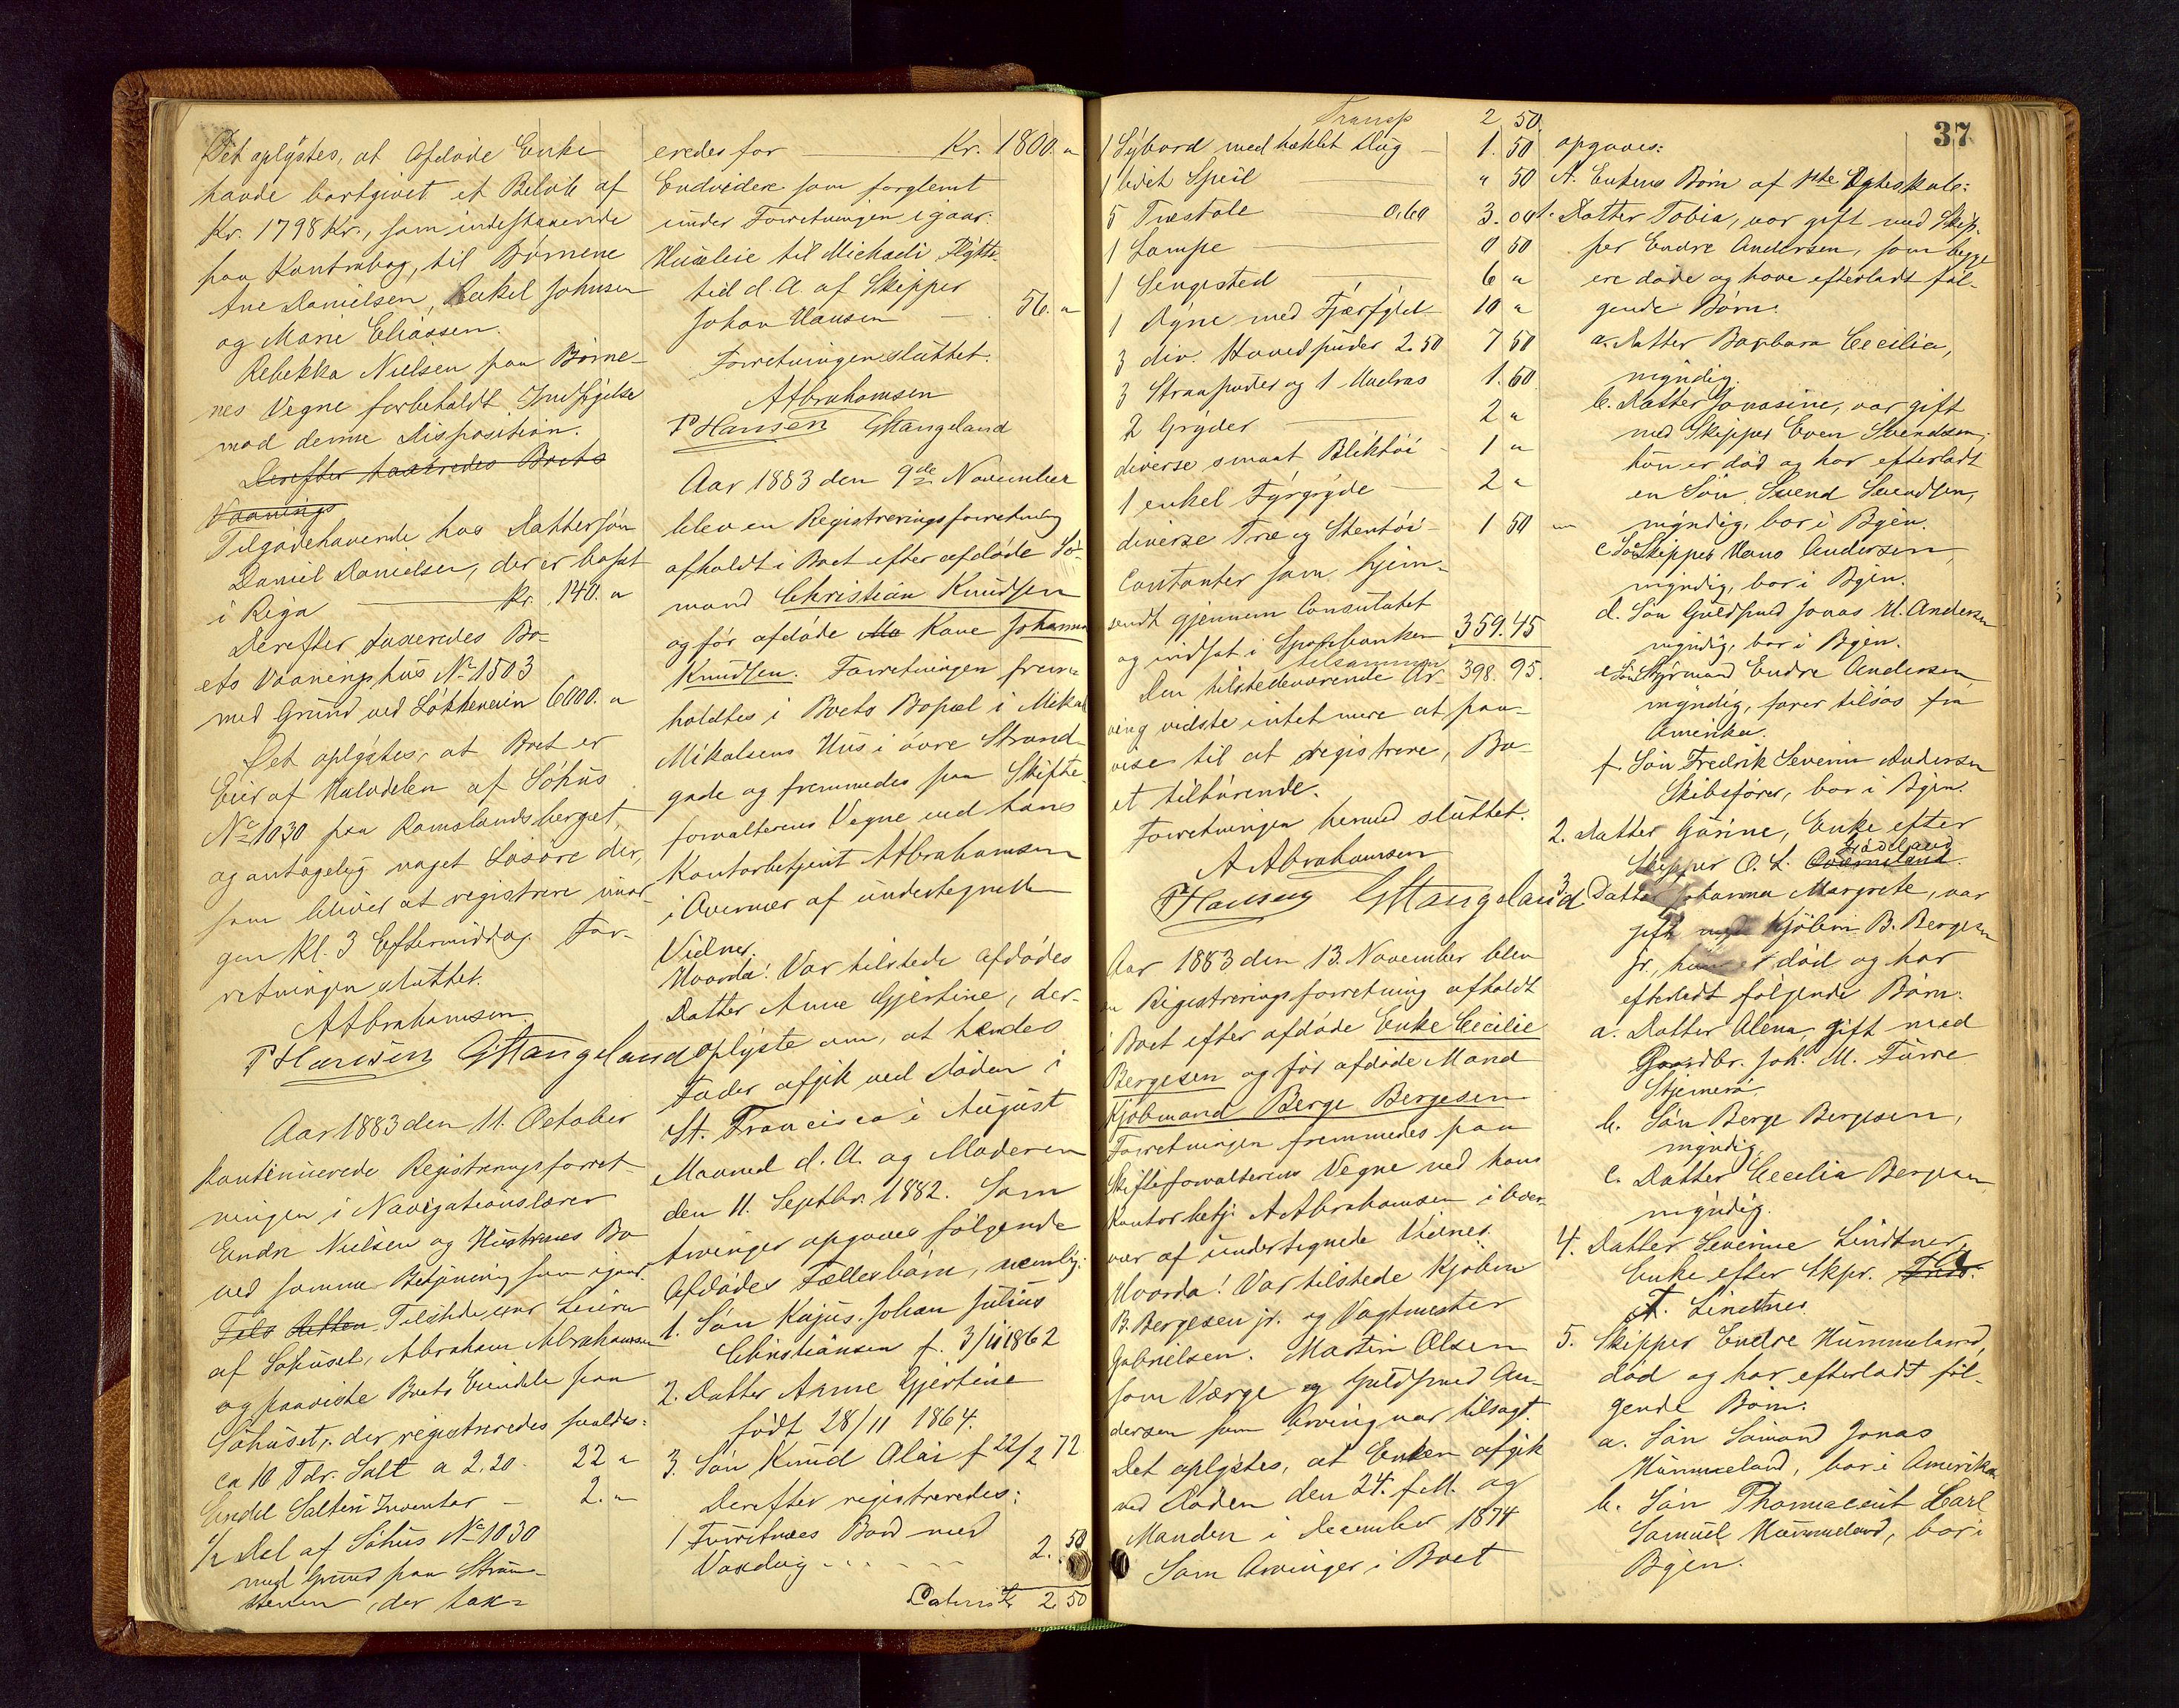 Det oplystes, at Afdøde Enke
havde bortgivet et Beløb af
Kr. 1798 Kr., som indestaaende
paa Kontrabog, til Børnene
Ane Danielsen, Rakel Johnsen
og Marie Eliassen.
Rebekka Nielsen paa Børne-
nes Vegne forbeholdt Indsigelse
mod denne Disposition.
Derefter taxeredes Boets
Vaanings
Tilgodehavende hos Dattersøn
Daniel Danielsen, der er bosat
i Riga Kr. 140. "
Derefter taxeredes Bo-
ets Vaaningshus No 1503
med Grund ved Løkkeveien 6000. "
Det oplystes, at Boet er
Eier af Halvdelen af Søhus
No 1030 paa Ramslandsberget,
og antagelig noget Løsøre der,
som bliver at registrere imor-
gen Kl. 3 Eftermiddag. For-
retningen sluttet.
A Abrahamsen.
P Hansen G Stangeland
Aar 1883 den 11. October
kontinuerede Registreringsforret-
ningen i Navigationslærer
Endre Nielsen og Hustrues Bo
ved samme Betjening som igaar.
Tils Retten Tilstede var Leieren
af Søhuset, Abraham Abrahamsen
og paaviste Boets Eiendele paa
Søhuset, der registreredes saaledes:
ca 10 Tdr. Salt a 2.20 22 "
Endel Salteri Inventar - 2. "
1/2 Del af Søhus No 1030
med Grund paa Strand-
, der tax-
eredes for Kr. 1800. "
Endvidere som forglemt
under Forretningen igaar.
Husleie til Michaeli Flytte-
tid d. A. af Skipper
Johan Hansen - 56. "
Forretningen sluttet.
A Abrahamsen
P Hansen G Stangeland
Aar 1883 den 9de November
blev en Registreringsforretning
afholdt i Boet efter afdøde Sø-
mand Christian Knudsen
og før afdøde Ma Kone Johanna
Knudsen. Forretningen frem-
holdtes i Boets Bopæl i Mikal
Mikalsens Hus i øvre Strand-
gade og fremmedes paa Skifte-
forvalterens Vegne ved hans
Kontorbetjent A Abrahamsen
i Overvær af undertegnede
Vidner.
Hvorda! Var tilstede Afdødes
Datter Anne Gjertine, der
oplyste om, at hendes
Fader afgik ved Døden i
St. Francisco i August
Maaned d. A. og Moderen
den 11. Septbr. 1882. Som
Arvinger opgaves følgende
Afdødes Fællesbørn, nemlig:
1. Søn Kajus Johan Julius
Christiansen f. 3/11 1862
2. Datter Anne Gjertine
født 28/11 1864.
3. Søn Knud Olai f 22/2 72
Derefter registreredes:
1 Furutræes Bord med
Voxdug 2. 50
Lateris Kr 2. 50
Transp 2 50.
1 Sybord med heklet Dug - 1. 50
1 lidet Speil " 50
5 Træstole 0.60 3. 00
1 Lampe 0 50
1 Sengested 6 "
1 Dyne med Fjærfyld 10 "
3 div. Hovedpuder 2.50 7 50
3 Straapuder og 1 Madras 1. 60
2 Gryder 2 "
diverse smaat Bliktøi - 1 "
1 enkel Fyrgryde 2 "
diverse Træ og Stentøi 1 50
Contanter som hjem-
sendt gjennem Consulatet
og indsat i Sparebanken 359.45
tilsammen Kr 398. 95.
Den tilstedeværende Ar-
ving vidste intet mere at paa-
vise til at registrere, Bo-
et tilhørende.
Forretningen hermed sluttet.
A Abrahamsen
P Hansen G Stangeland
Aar 1883 den 13. November blev
en Registreringsforretning afholdt
i Boet efter afdøde Enke Cecilie
Bergesen og før afdøde Mand
Kjøbmand Berge Bergesen
Forretningen fremmedes paa
Skifteforvalterens Vegne ved hans
Kontorbetj. A Abrahamsen i Over-
vær af undertegnede Vidner.
Hvorda! Var tilstede Kjøbm
B. Bergesen jr. og Vagtmester
Gabrielsen. Martin Olsen
som Værge og Guldsmed An-
dersen som Arving var tilsagt.
Det oplystes, at Enken afgik
ved Døden den 24. f. M. og
Manden i December 1874
Som Arvinger i Boet
37
opgaves:
A. Enkens Børn af 1ste Egteskab:
1. Datter Tobia, var gift med Skip-
per Endre Andersen, som begge
ere døde og have efterladt føl-
gende Børn:
a. Datter Barbara Cecilia,
myndig.
b. Datter Jonasine, var gift
med Skipper Even Svendsen;
hun er død og har efterladt
en Søn, Svend Svendsen,
myndig, bor i Byen.
c. Søn Skipper Hans Andersen,
myndig, bor i Byen.
d. Søn Guldsmed Jonas H. Andersen
myndig, bor i Byen.
e Søn Styrmand Endre Andersen
myndig, farer tilsøs fra
Amerika.
f. Søn Fredrik Severin Andersen
Skibsfører, bor i Byen.
2. Datter Gurine, Enke efter
Skipper O. L.
3. Datter Johanna Margrete, var
gift med Kjøbm. B. Bergesen
jr., hun er død og har
efterladt følgende Børn:
a. Datter Alena, gift med
Gaardbr. Joh. M. Furre
Stjernerø.
b. Søn Berge Bergesen,
myndig.
c. Datter Cecilia Bergesen
myndig.
4. Datter Severine Lindtner,
Enke efter Skpr.
T. Lindtner.
5. Skipper Endre Hummeland,
død og har efterladt føl-
gende Børn:
a. Søn Sømand Jonas
Hummeland, bor i Amerika
b. Søn Carl
Samuel Hummeland, bor i
Byen.